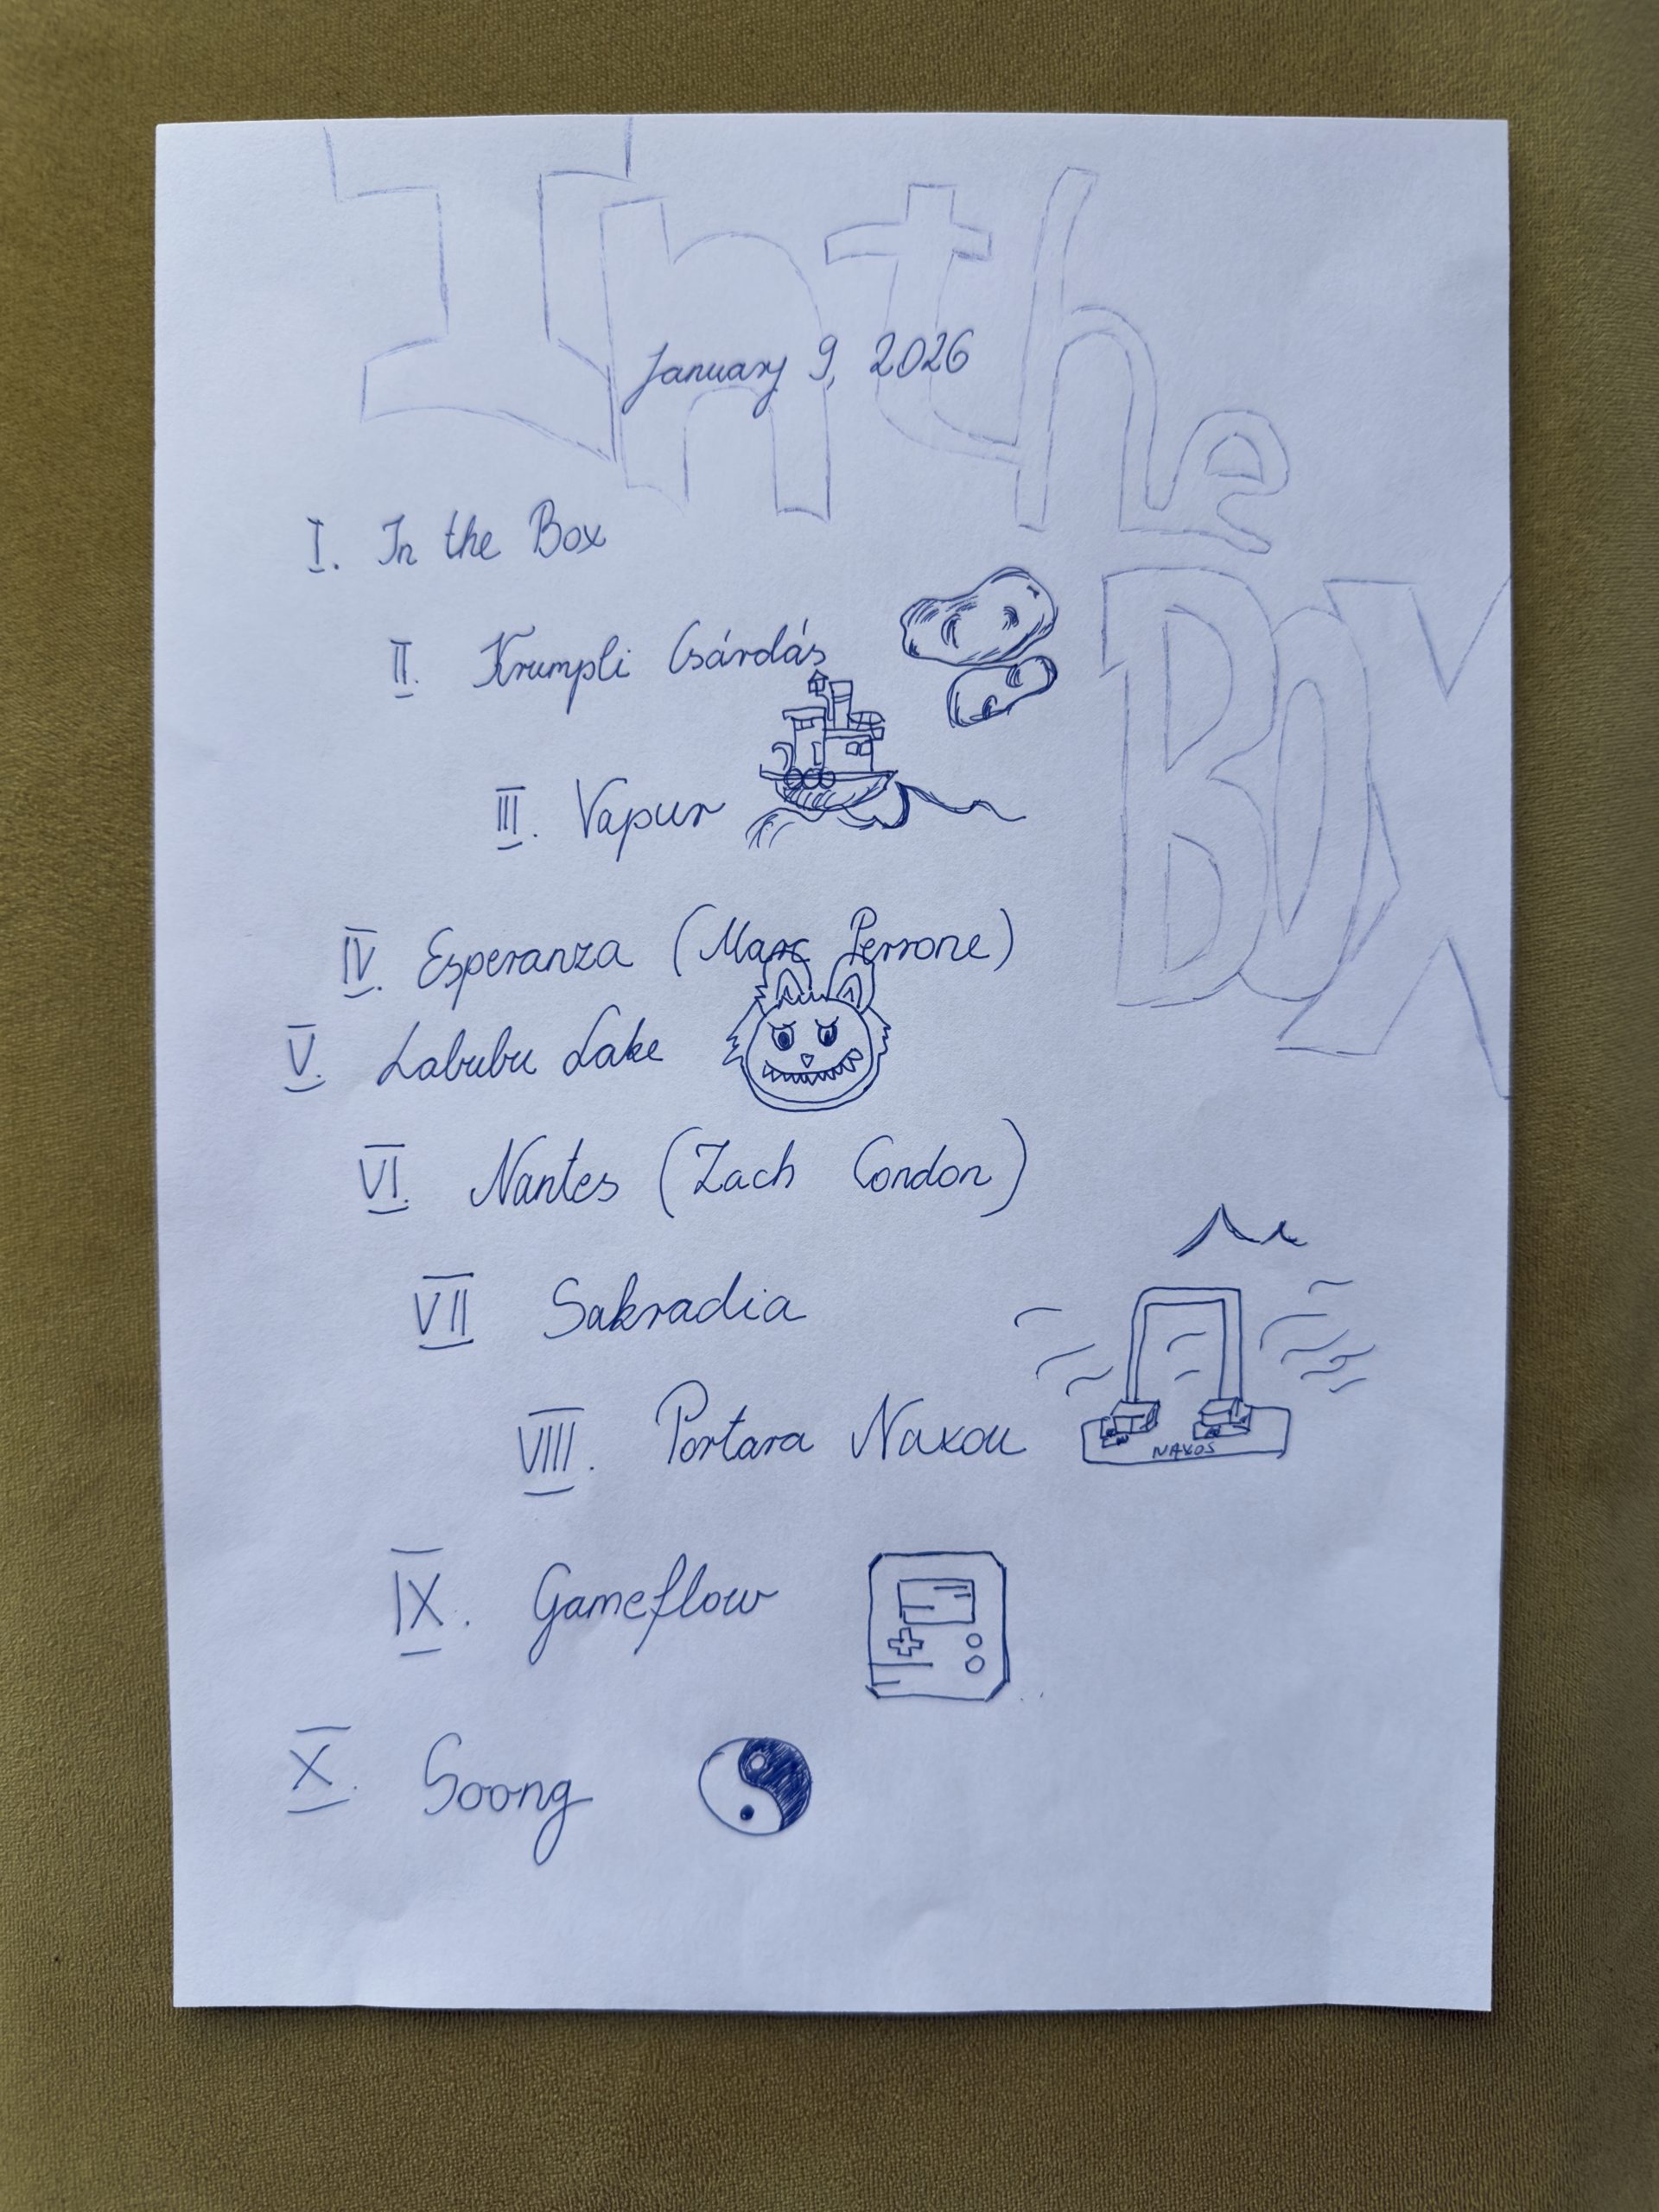 In the
BOX
January 9, 2026
I. In the Box
II. Krumpli Csárdás
III. Vapur
IV. Esperanza (Marc Perrone)
V. Labubu Lake
VI. Nantes (Zach Condon)
VII Sakradia
VIII. Portara Naxou
NAXOS
IX. Gameflow
X. Soong